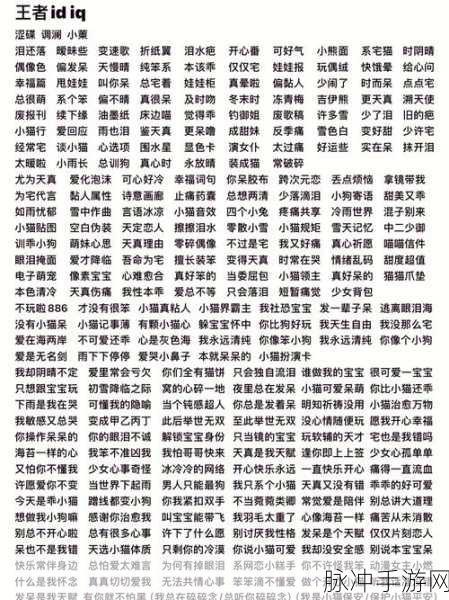 王者id iq
涩碟 调澜 小薰
泪还落 暧昧些 变速歌 折纸翼 泪水疤 开心番 可好气 小熊面 系宅猫 时阴晴
偶像色 偏发呆 天慢晴 纯笨系 本该乖 仅仅宅 娃娃报 玩偶绒 快饿晕 给心问
幸福篇 甩娃娃 叫你呆 总宅着 娃娃柜 真晕啦 偏黏人 少闹了 时而呆 点点宅
总很萌 系个笨 偏不晴 真很呆 及时吻 冬末时 冻青梅 吉伊熊 更天真 溯天使
废报刊 续下缘 油墨纸 床边喵 觉得乖 钓御姐 废歌稿 许多雪 少了泪 旧的疤
小猫行 爱回应 雨也泪 鉴天真 更呆噜 成甜妹 反季痛 雪色白 变好甜 少许宅
经常宅 谈小猫 心选项 围水星 显色卡 演女仆 太过痛 好运些 实在呆 抹开泪
太暖啦 小雨长 总训狗 真心时 永放晴 装成猫 常破碎
尤为天真 爱化泡沫 可心好冷 幸福词句 你呆胶布 跨次元恋 丢点烦恼 拿镜带我
为宅代言 黏人属性 诗意画廊 止痛药囊 总想两清 少落滴泪 小狗寄语 甜美又乖
如雨忧郁 雪中作曲 言语冰凉 小猫音效 四个小兔 疼痛共享 冷雨世界 混子别来
小猫贴图 空白伪装 天定恋人 擦擦泪水 零散小雪 小猫规矩 雪天记忆 中二少御
训乖小狗 萌妹心思 天真理由 零碎偶像 不过是宅 我又好痛 真心祈愿 喵喵信件
眼泪掩面 爱才降临 吾命为宅 擅长装笨 变得天真 时常在哭 情绪乱码 甜度超值
电子萌宠 像素宝宝 心难愈合 真好笨的 当委屈包 小猫领主 真好呆的 猫猫爪垫
本色清冷 天真伤痛 我性本乖 爱总不等 只会落泪 短暂痛觉 少女背包
不玩啦886 才没有很笨 小猫真粘人 小猫界霸主 我社恐宝宝 发一辈子呆 逃离眼泪海
没有小猫呆 小猫记事薄 有颗小猫心 躲宝宝怀中 你比狗好玩 我天生自由 我没那么宅
爱在海两岸 不可爱还乖 心是灰色海 我永远清纯 你像笨小狗 我永远清纯 你像个小狗
爱是无名剑 雨下下停停 爱哭小鼻子 本就呆呆的 小猫扮演卡
我却阴晴不定 爱里常会亏欠 你们全有猫饼 只会独自流泪 谁做我的宝宝 很可爱一宝宝
只想跟宝宝玩 初雪降临之际 窝的心碎一地 夜里总在发呆 小猫可爱呆萌 你比小猫还乖
下雨是我在哭 可懂我的隐喻 当个钝感超人 你总是发着呆 明知祈祷没用 小猫治愈万物
我敏感又总哭 变成甲乙丙丁 此后举世无双 至此举世无双 没心情随便玩 愿我开心幸福
你操作呆呆的 你的眼泪不诚 解锁宝宝身份 只当镜的宝宝 玩软辅的天才 宅也是我错吗
海苔一样的心 我笨不准凶我 我怕哥哥快来 天真是我天赋 逢你即上上签 少女心孤单单
又怕你不懂我 少女心事奇怪 冰冷冷的网络 开心快乐永远 一直快乐开心 痛得一直流血
许愿爱你不变 当世界下起雨 男人只能最狗 我只系个小猫 天真又没有错 乖乖的好可爱
今天是乖小猫 蹭线都变小狗 你我紧扣双手 不当菀菀类卿 常觉爱是陪伴 别总讲大道理
想做我小狗嘛 感谢你治愈我 叫宝宝能带飞 我羽毛太重了 心像海苔一样 痛苦从未消散
别总不开心啦 总有很多心事 许下了什么愿 别讨厌我性格 发呆是我天赋 仅仅片刻恋人
呆也不是我错 天选小猫体质 只剩你的冷漠 你说小猫可爱 我却没安全感 别说本宝宝呆
快乐常伴身边 总怕爱太难言 为何有掉眼泪 系网恋小糕手
什么是我怀念 真真切切爱我 无法共情心事 笨笨滴不懂爱
脉冲手游网